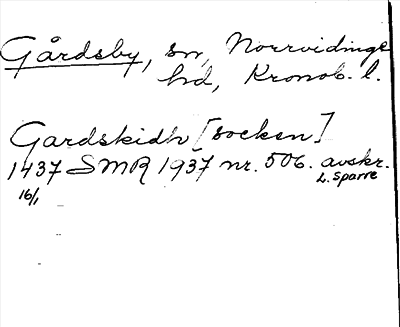 Gårdsby, sn, Norrvidinge
hd, Kronob. l.
Gardskidh [socken]
1437 SMR 1937 nr. 506. avskr.
16/1 L. Sparre